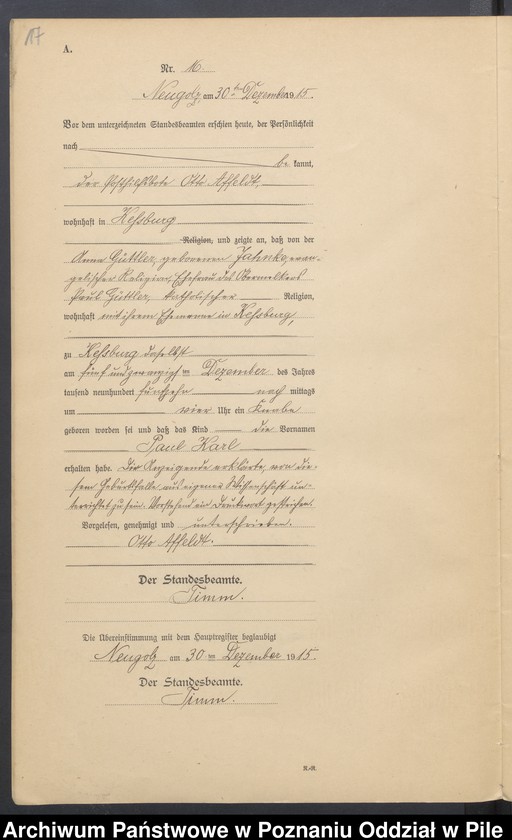 17
A.
Nr. 16.
Neugolz, am 30ten Dezember 1915.
Vor dem unterzeichneten Standesbeamten erschien heute, der Persönlichkeit
nach
be kannt,
der Posthilfsbote Otto Affeldt,
wohnhaft in Keßburg
Religion, und zeigte an, daß von der
Anna Güttler, geborenen Jahnke, evan-
gelischer Religion, Ehefrau des Obermelkers
Paul Güttler, katholischer Religion,
wohnhaft mit ihrem Ehemanne in Keßburg,
zu Keßburg daselbst
am fünf und zwanzigsten Dezember des Jahres
tausend neunhundert fünfzehn nach mittags
um vier Uhr ein Knabe
geboren worden sei und daß das Kind die Vornamen
Paul Karl
erhalten habe. Der Anzeigende erklärte, von die-
sem Geburtsfalle aus eigener Wissenschaft un-
terrichtet zu sein. Vorstehend ein Druckwort gestrichen.
Vorgelesen, genehmigt und unterschrieben.
Otto Affeldt.
Der Standesbeamte.
Timm.
Die Übereinstimmung mit dem Hauptregister beglaubigt
Neugolz am 30ten Dezember 1915.
Der Standesbeamte.
Timm.
R.-R.
Archiwum Państwowe w Poznaniu Oddział w Pile